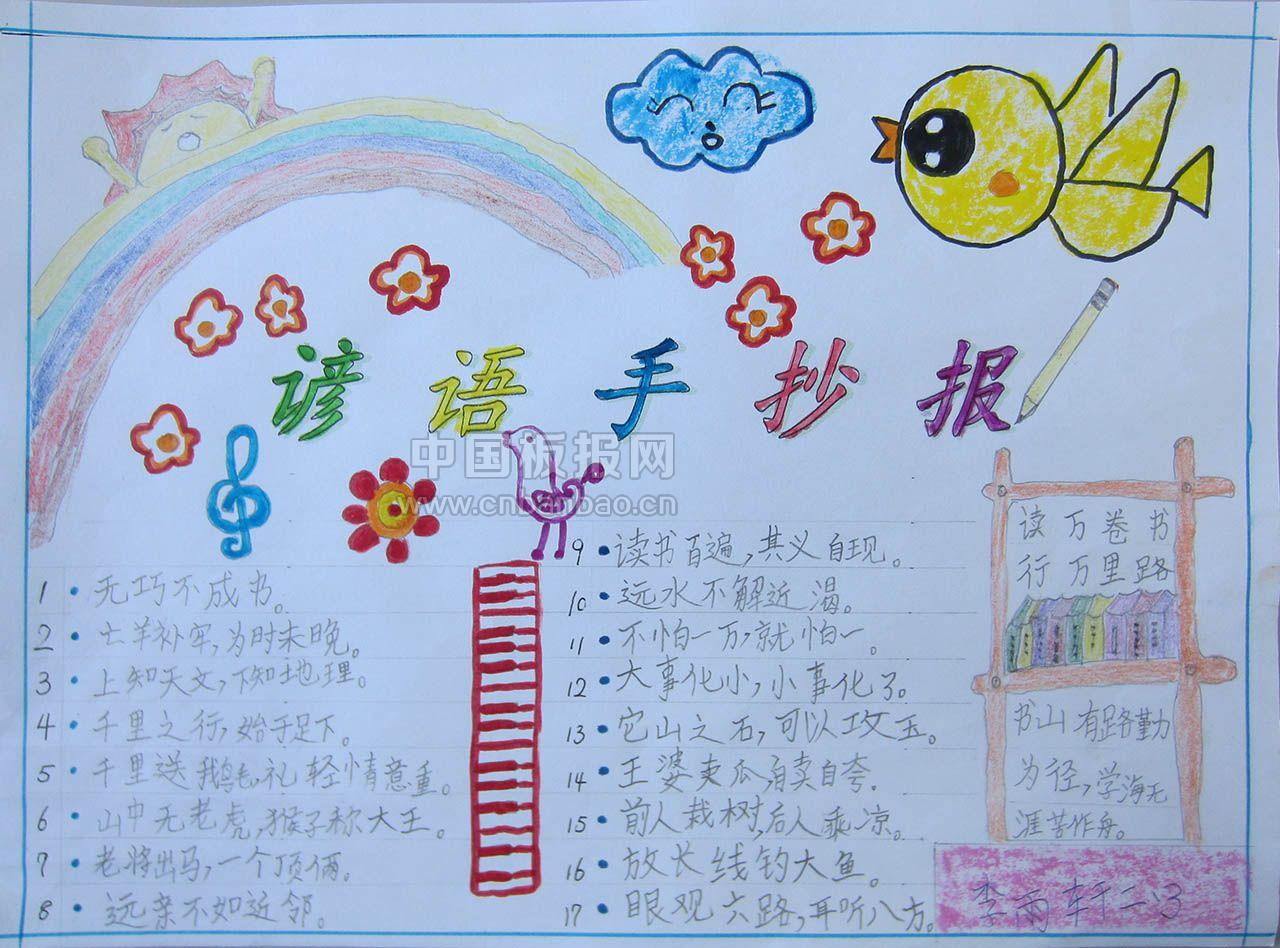 谚语手抄报
中国板报网
www.cnbanbao.cn
1 · 无巧不成书。
2 · 亡羊补牢，为时未晚。
3 · 上知天文，下知地理。
4 · 千里之行，始于足下。
5 · 千里送我鹅毛，礼轻情意重。
6 · 山中无老虎，猴子称大王。
7 · 老将出马，一个顶俩。
8 · 远亲不如近邻。
9 · 读书百遍，其义自现。
10 · 远水不解近渴。
11 · 不怕一万，就怕一。
12 · 大事化小，小事化了。
13 · 它山之石，可以攻玉。
14 · 王婆卖瓜，自卖自夸。
15 · 前人栽树，后人乘凉。
16 · 放长线钓大鱼。
17 · 眼观六路，耳听八方。
读万卷书
行万里路
书山有路勤
为径，学海无
涯苦作舟。
李雨轩二